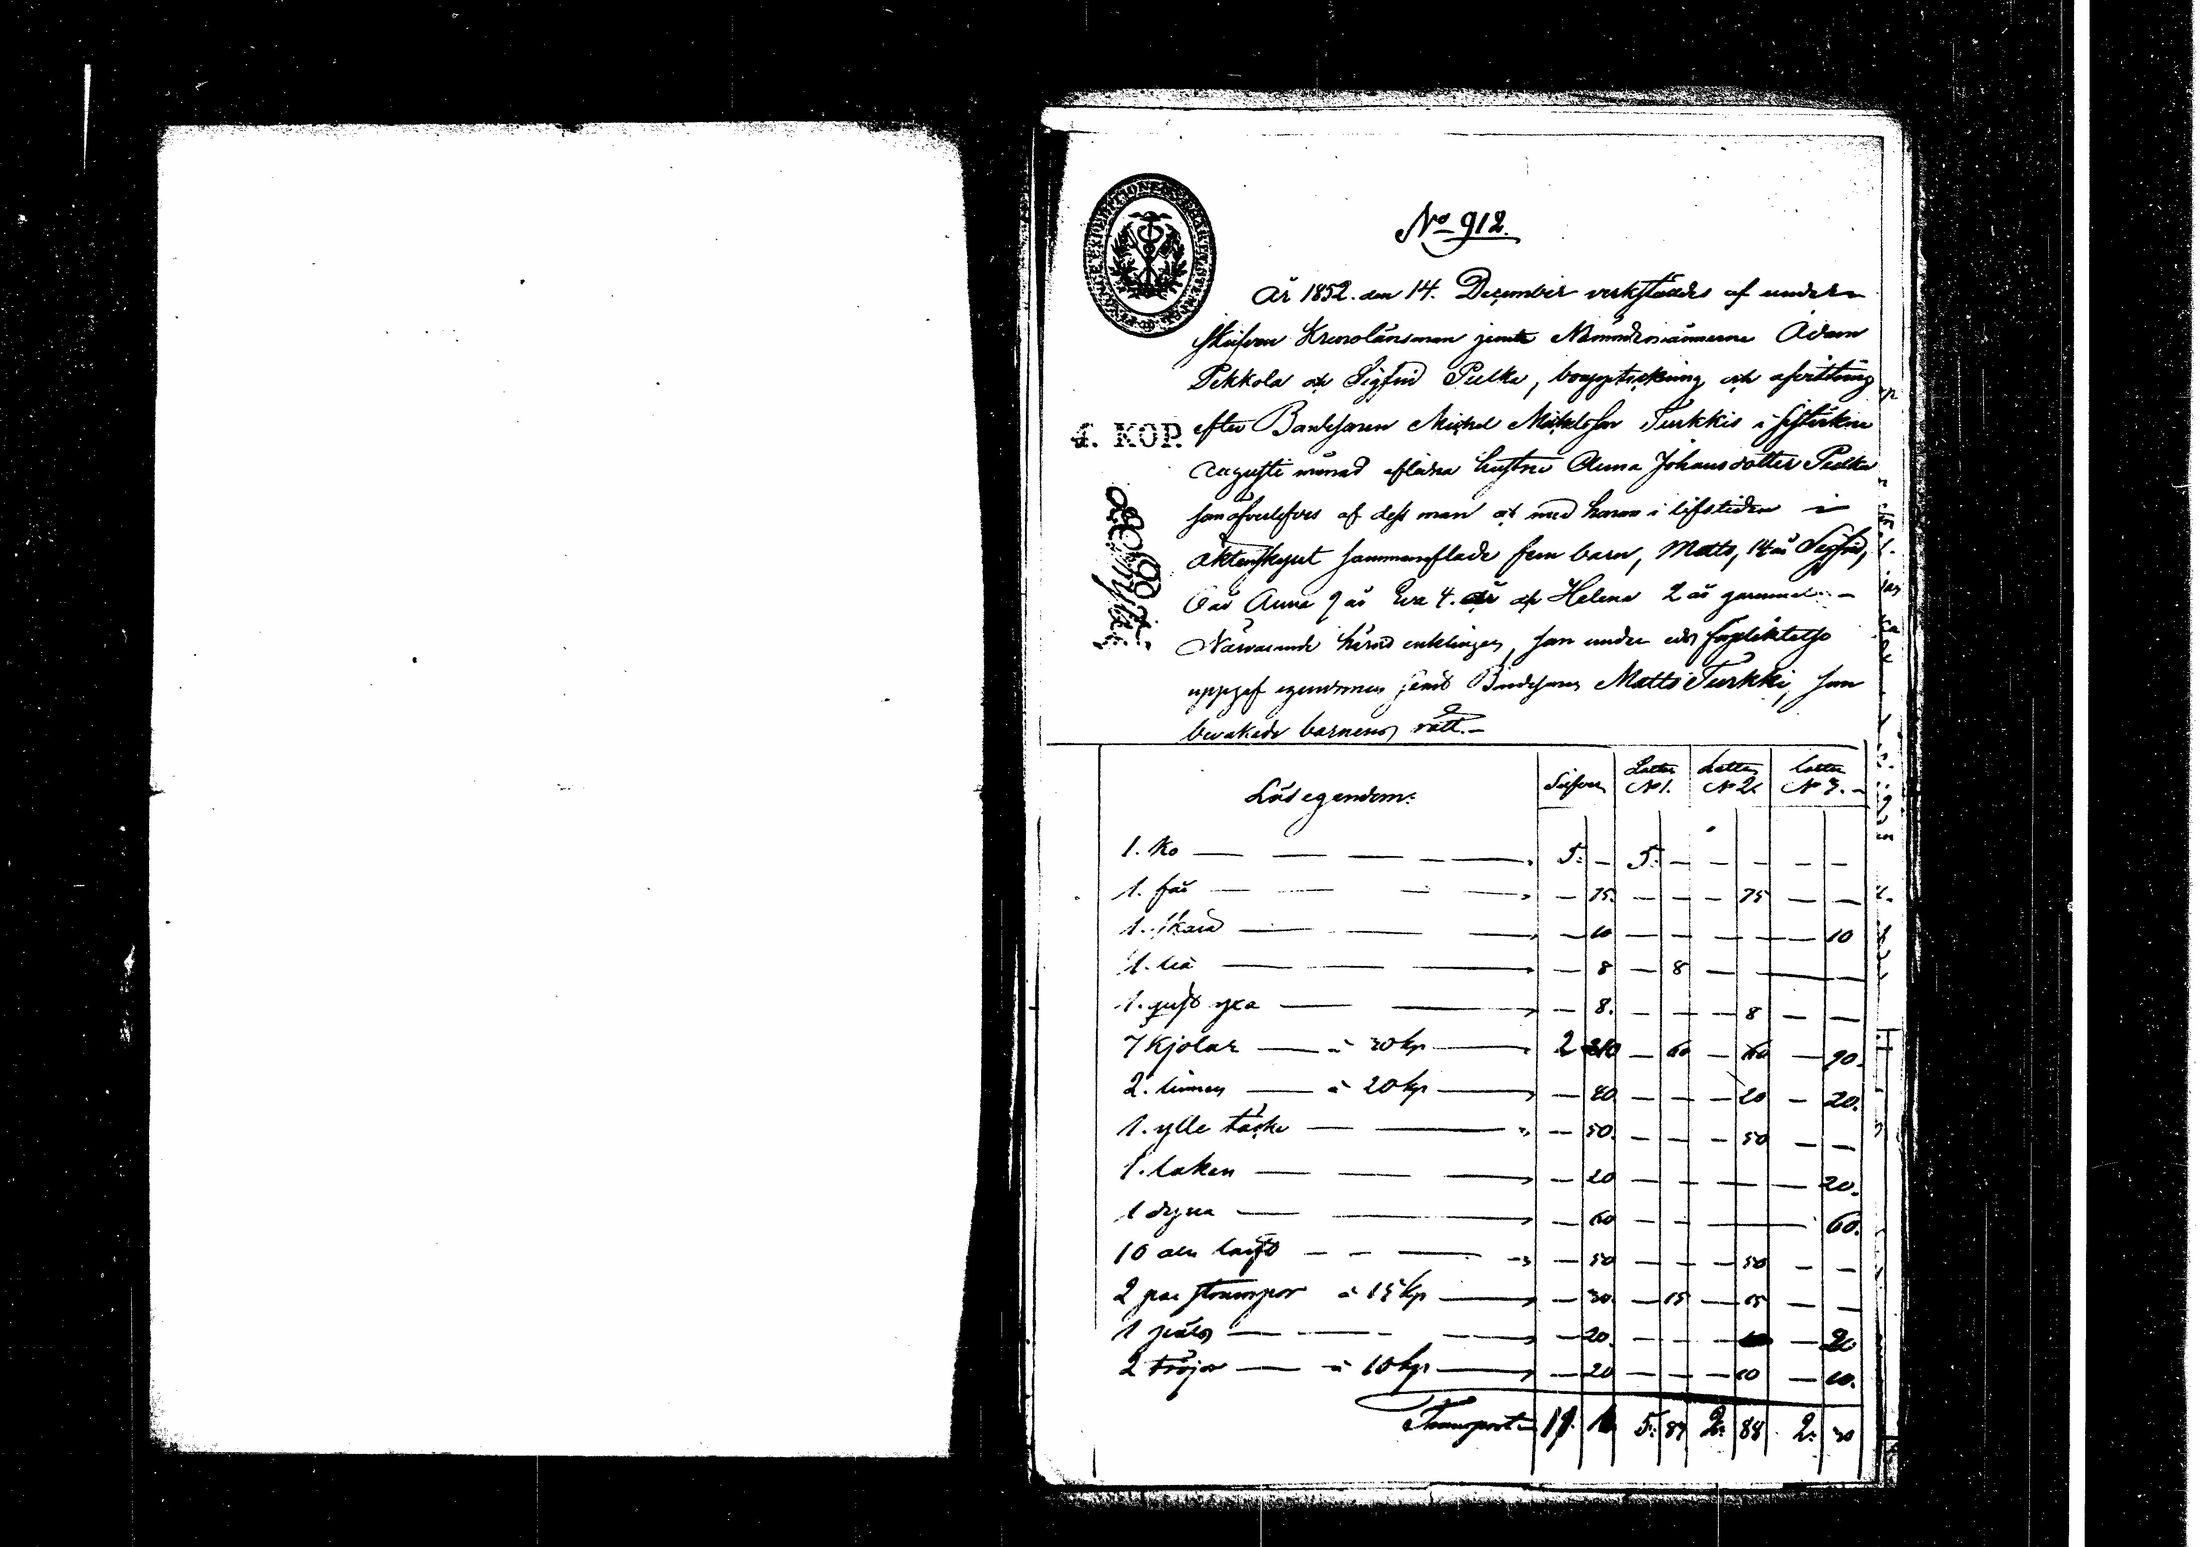 No 912.
År 1852. den 14. December verkställdes af under
skrifven Kronolänsman jemte Nämndemännerne Adam
Pekkola och Sigfrid Pulka, bouppteckning och afvittring
4. KOP.
efter Bondesonen Michel Michelsson Turkkis i sistlidne
Augusti månad aflidna hustru Anna Johansdotter Pulka
som öfverlefves af dess man och med honom i lifstiden i
äktenskapet sammanaflade fem barn, Matts, 14 år Sigfrid,
år Anna 9 år Eva 4. år och Helena 2 år gammal
Närvarande härvid enklingen, som under eds förpliktelse
uppgef egendomen jemte Bondesonen Matts Turkki, som
bevakade barnens rätt.
Lösegendom: Silfver Lotten No 1. Lotten No 2. Lotten No 3.
1. ko 5. — 5. — — — — —
1. får — 75. — — — 75 — —
1. skära — 10 — — — — — 10
1. lia — 8 — 8 — — — —
1. yxa — 8. — — — 8 — —
7 kjolar à 30 kp 2 10 — 60 — 60 — 90.
2. linnen à 20 kp — 40. — — — 20 — 20.
1. ylle täcke — 50. — — — 50 — —
1. laken — 20 — — — — — 20.
1 dyna — 60 — — — — 60.
10 aln lärft — 50 — — — 50 — —
2 par strumpor à 15 kp — 30. — 15 — 15 — —
1 — 20. — — — — 20
2 tröjor à 10 kp — 20 — — — 10 — 10.
Transport 11. 1 5. 83 2. 88 2. 30